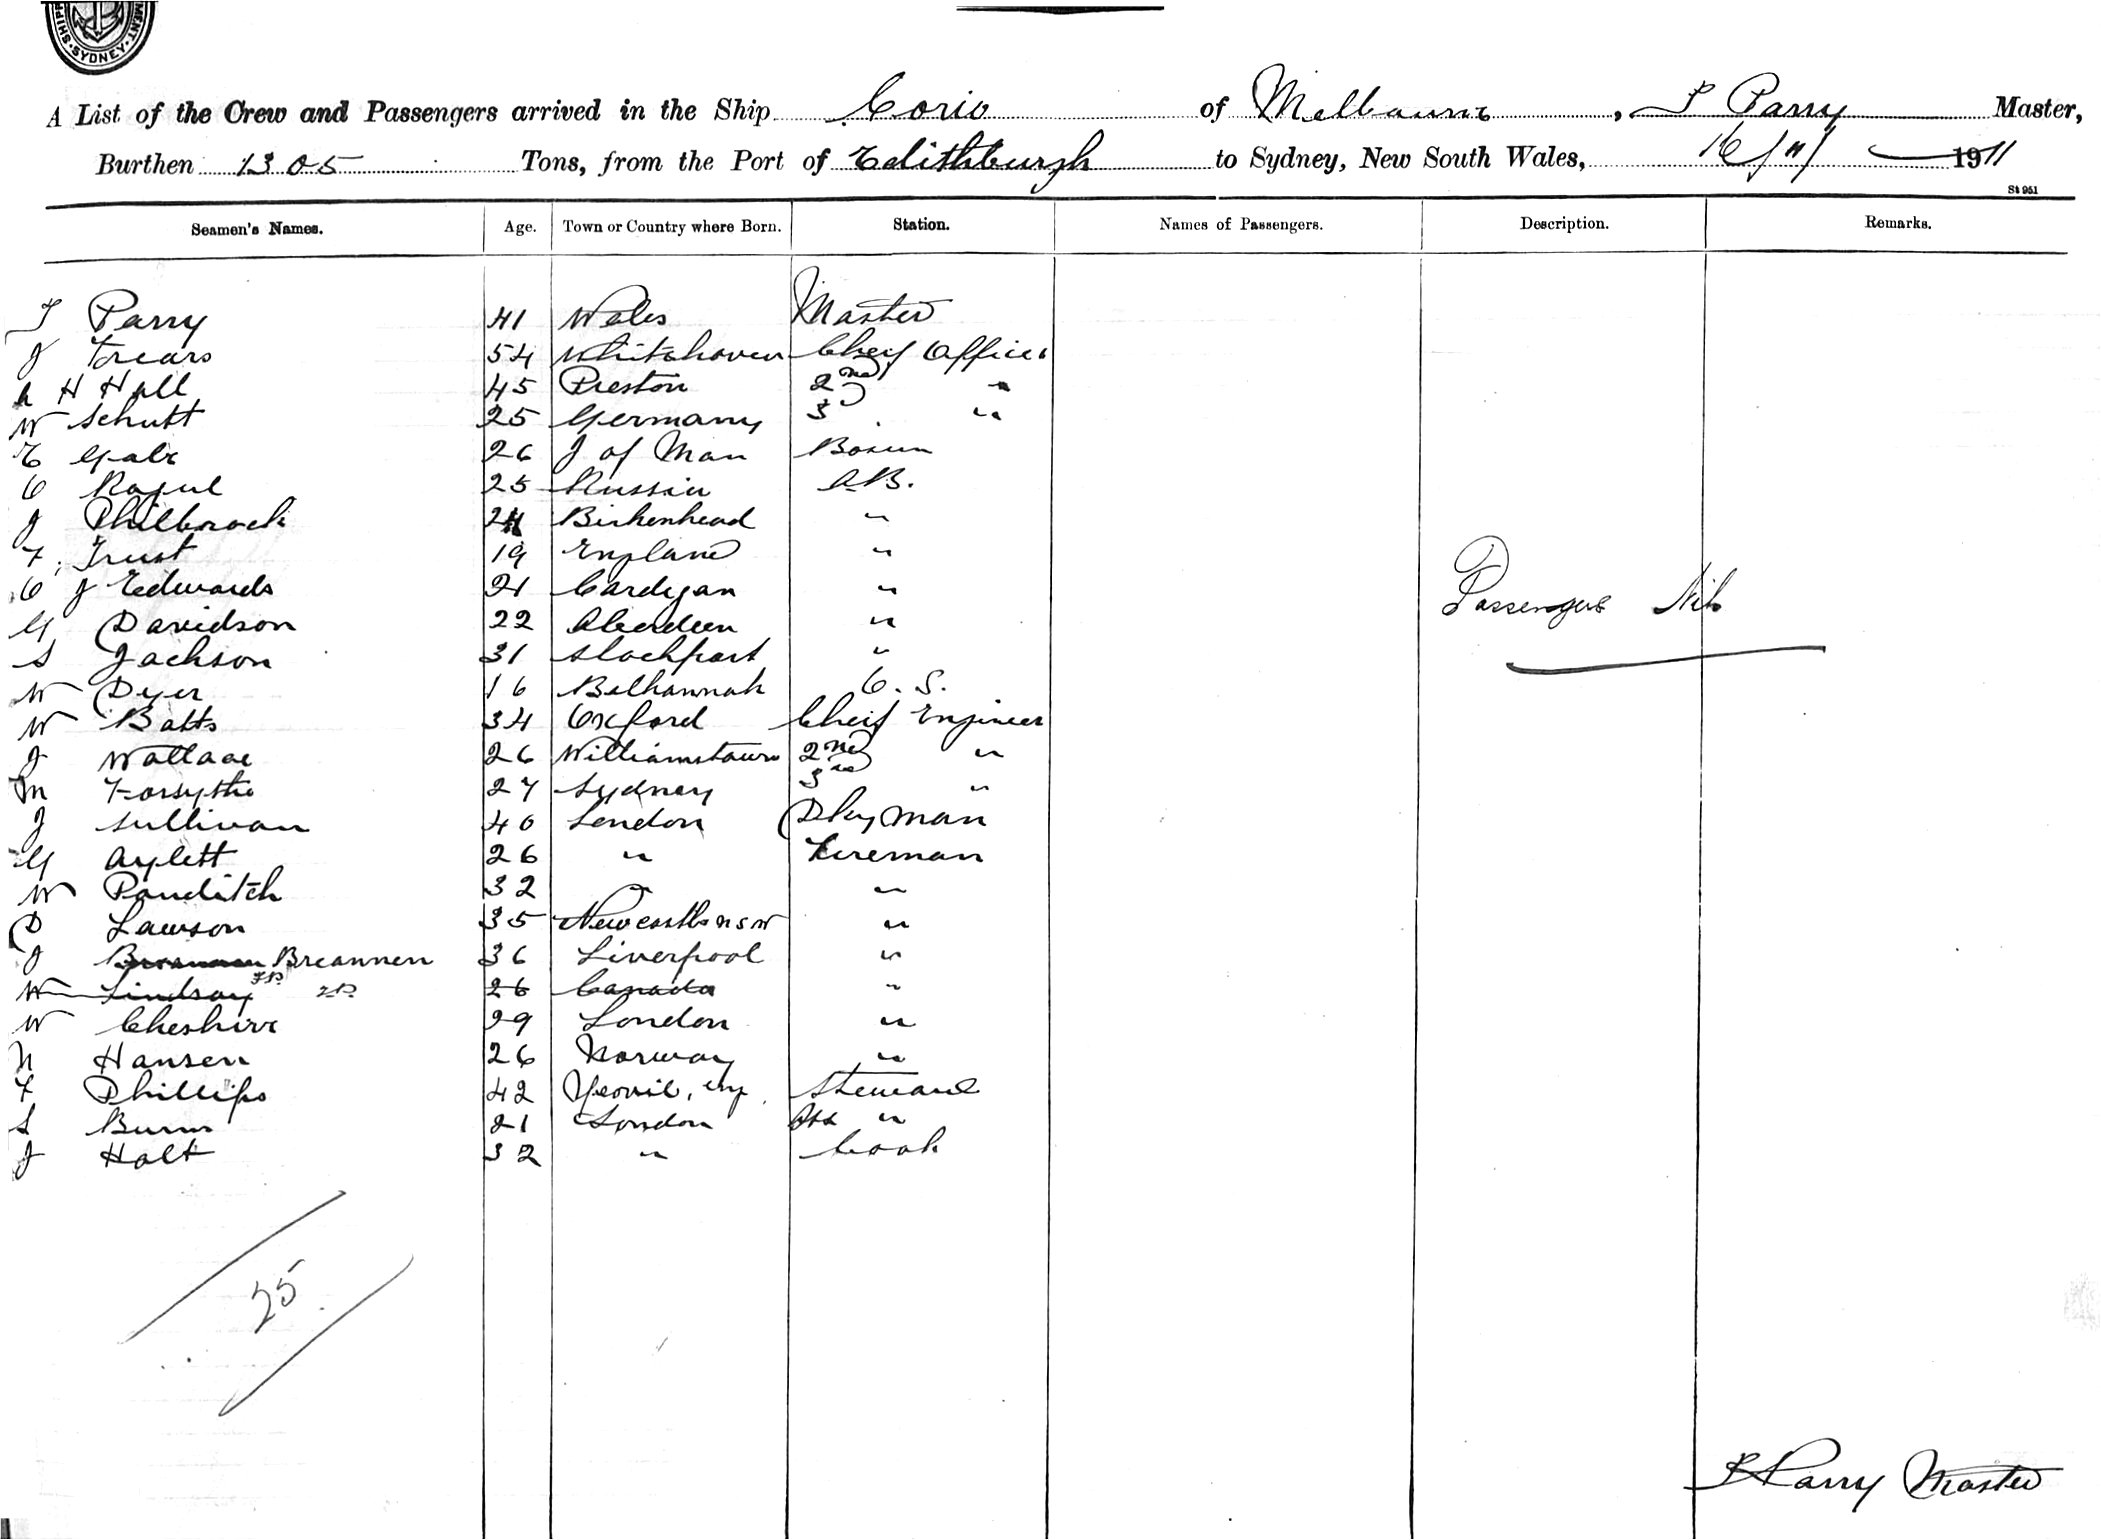 SHIPP MENT. SYDNEY
A List of the Crew and Passengers arrived in the Ship Corio of Melbourne, Parry Master,
Burthen 1305 Tons, from the Port of Edithburgh to Sydney, New South Wales, 16/11/ 1911
St 951
Seamen's Names. Age. Town or Country where Born. Station. Names of Passengers. Description. Remarks.
T Parry 41 Wales Master
J Frears 54 Whitehaven Cheif Officer
A H Hall 45 Preston 2nd "
W Schutt 25 Germany 3 "
E Gale 26 I of Man Bosun
C 25 Russia A.B.
J Philbrock 24 Birkenhead "
F. Trust 19 England "
C J Edwards 21 Cardigan "
G Davidson 22 Aberdeen "
S Jackson 31 Stockport "
W Dyer 16 Balhannah O.S.
W Batts 34 Oxford Cheif Engineer
J Wallace 26 Williamstown 2nd "
M Forsythe 27 Sydney 3rd "
J Sullivan 40 London Dkyman
G Aylett 26 " Fireman
W Panditch 32 " "
D Lawson 35 Newcastle NSW "
J Brennen 36 Liverpool "
W Lindsay 26 Canada "
W Cheshire 29 London "
N Hansen 26 Norway "
F Phillips 42 Yeovil, Eng. Steward
S Burns 21 London Ass "
J Holt 32 " Cook
Passengers Nil
25
Parry Master